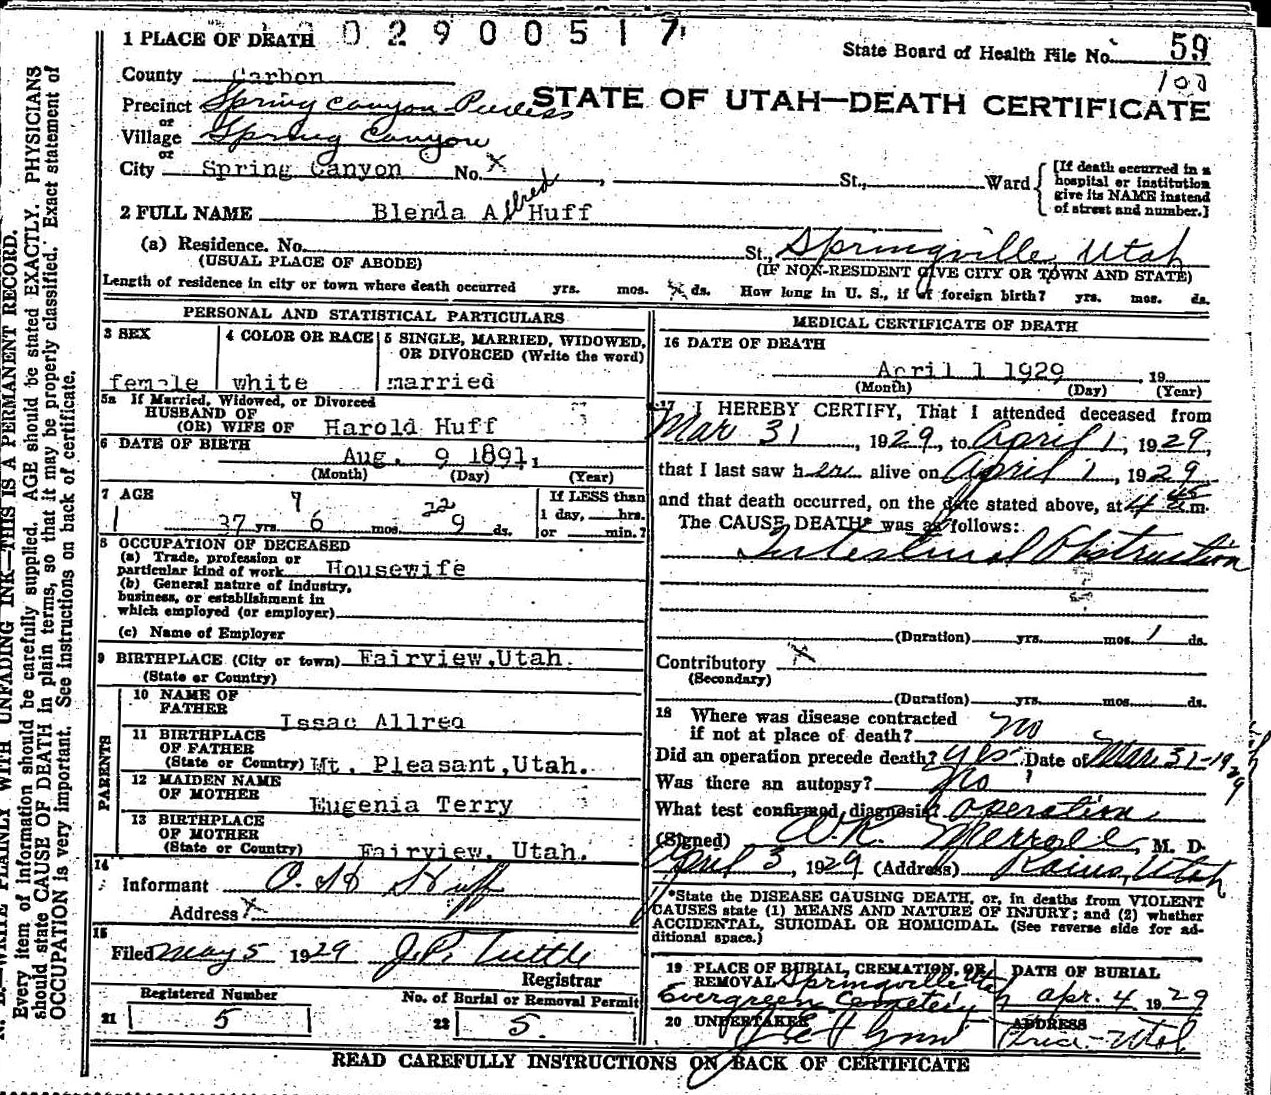 0 2 9 0 0 5 1 7
1 PLACE OF DEATH
State Board of Health File No. 59
107
County Carbon
STATE OF UTAH—DEATH CERTIFICATE
Precinct Spring Canyon
or
Village Spring Canyon
or
City Spring Canyon No. X , St., Ward
[If death occurred in a hospital or institution give its NAME instead of street and number.]
2 FULL NAME Blenda Allred Huff
(a) Residence. No. St., Springville, Utah
(USUAL PLACE OF ABODE) (IF NON-RESIDENT GIVE CITY OR TOWN AND STATE)
Length of residence in city or town where death occurred yrs. mos. X ds. How long in U. S., if of foreign birth? yrs. mos. ds.
PERSONAL AND STATISTICAL PARTICULARS
3 SEX
female
4 COLOR OR RACE
white
5 SINGLE, MARRIED, WIDOWED, OR DIVORCED (Write the word)
married
5a If Married, Widowed, or Divorced
HUSBAND OF
(OR) WIFE OF Harold Huff
6 DATE OF BIRTH
Aug. 9 1891,
(Month) (Day) (Year)
7 AGE
37 yrs. 6 mos. 9 ds.
7 22
If LESS than
1 day, hrs.
or min.?
8 OCCUPATION OF DECEASED
(a) Trade, profession or
particular kind of work Housewife
(b) General nature of industry,
business, or establishment in
which employed (or employer)
(c) Name of Employer
9 BIRTHPLACE (City or town) Fairview, Utah.
(State or Country)
PARENTS
10 NAME OF
FATHER Issac Allred
11 BIRTHPLACE
OF FATHER
(State or Country) Mt. Pleasant, Utah.
12 MAIDEN NAME
OF MOTHER
Eugenia Terry
13 BIRTHPLACE
OF MOTHER
(State or Country) Fairview, Utah.
14
Informant O. H Huff
Address X
15
Filed May 5 1929 J.P. Tuttle
Registrar
Registered Number
21 5
No. of Burial or Removal Permit
22 5.
MEDICAL CERTIFICATE OF DEATH
16 DATE OF DEATH
April 1 1929 , 19
(Month) (Day) (Year)
17 I HEREBY CERTIFY, That I attended deceased from
Mar 31 , 1929, to April 1, 1929,
that I last saw her alive on April 1, 1929
and that death occurred, on the date stated above, at 4 45 a.m.
The CAUSE DEATH* was as follows:
Intestinal Obstruction
(Duration) yrs. mos. 1 ds.
Contributory X
(Secondary)
(Duration) yrs. mos. ds.
18 Where was disease contracted
if not at place of death? No
Did an operation precede death? yes Date of Mar 31-1929
Was there an autopsy? No
What test confirmed diagnosis? operation
(Signed) W.R. Merrole, M. D.
April 3, 1929 (Address) Rains, Utah
*State the DISEASE CAUSING DEATH, or, in deaths from VIOLENT
CAUSES state (1) MEANS AND NATURE OF INJURY; and (2) whether
ACCIDENTAL, SUICIDAL OR HOMICIDAL. (See reverse side for ad-
ditional space.)
19 PLACE OF BURIAL, CREMATION, OR
REMOVAL Springville Utah
Evergreen Cemetery
DATE OF BURIAL
Apr. 4 1929
20 UNDERTAKER
ADDRESS
Price - Utah
READ CAREFULLY INSTRUCTIONS ON BACK OF CERTIFICATE
WRITE PLAINLY WITH UNFADING INK—THIS IS A PERMANENT RECORD.
Every item of information should be carefully supplied. AGE should be stated EXACTLY. PHYSICIANS
should state CAUSE OF DEATH in plain terms, so that it may be properly classified. Exact statement of
OCCUPATION is very important. See instructions on back of certificate.